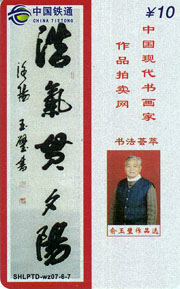 中国铁通
CHINA TIETONG
¥10
中国现代书画家
作品拍卖网
书法荟萃
浩氣贯夕陽
玉璧书
俞玉璧作品选
SHLPTD-wz07-6-7